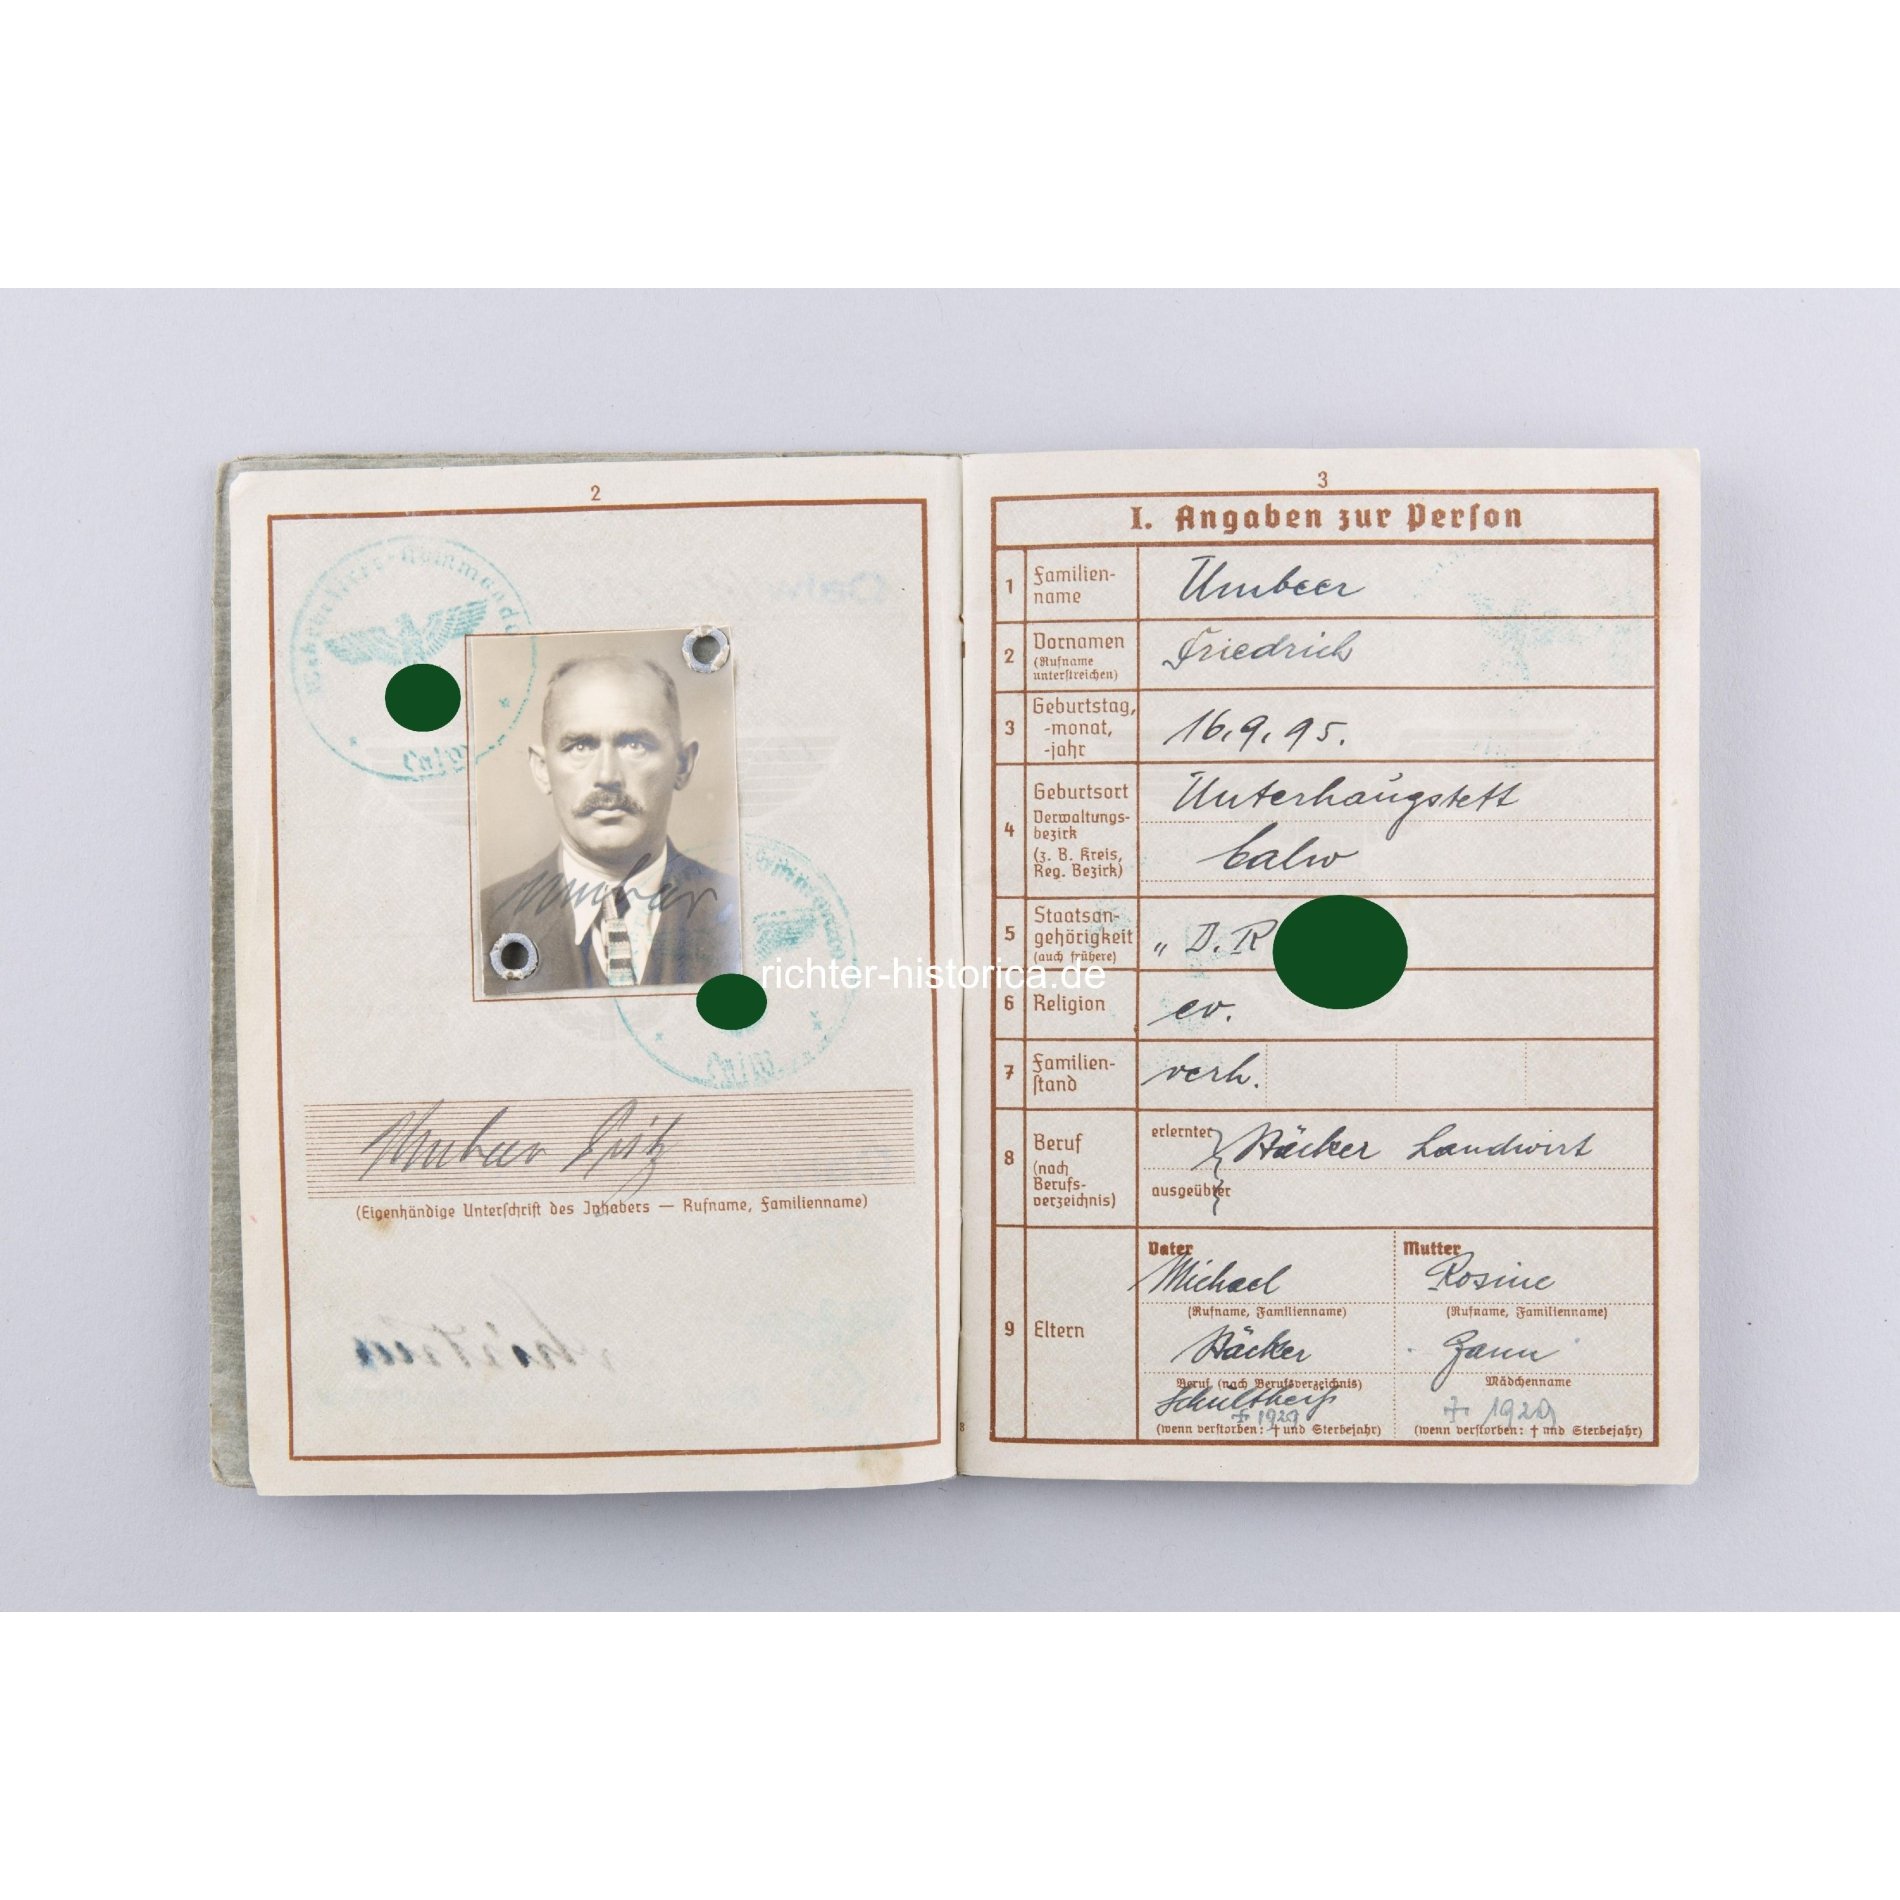 2
Wehrbezirks-Kommando
Calw
Umbeer
Calw
richter-historica.de
Umbeer Fritz
(Eigenhändige Unterschrift des Inhabers — Rufname, Familienname)
3
I. Angaben zur Person
1 Familien-
name
Umbeer
2 Vornamen
(Rufname
unterstreichen)
Friedrich
3 Geburtstag,
-monat,
-jahr
16.9.95.
4 Geburtsort
Verwaltungs-
bezirk
(z. B. Kreis,
Reg. Bezirk)
Unterhaugstett
Calw
5 Staatsan-
gehörigkeit
(auch frühere)
„ D. R
6 Religion
ev.
7 Familien-
stand
verh.
8 Beruf
(nach
Berufs-
verzeichnis)
erlernter
Bäcker Landwirt
ausgeübter
9 Eltern
Vater
Michael
(Rufname, Familienname)
Bäcker
Beruf (nach Berufsverzeichnis)
Schultheiß
† 1929
(wenn verstorben: † und Sterbejahr)
Mutter
Rosine
(Rufname, Familienname)
Mädchenname
† 1929
(wenn verstorben: † und Sterbejahr)
8